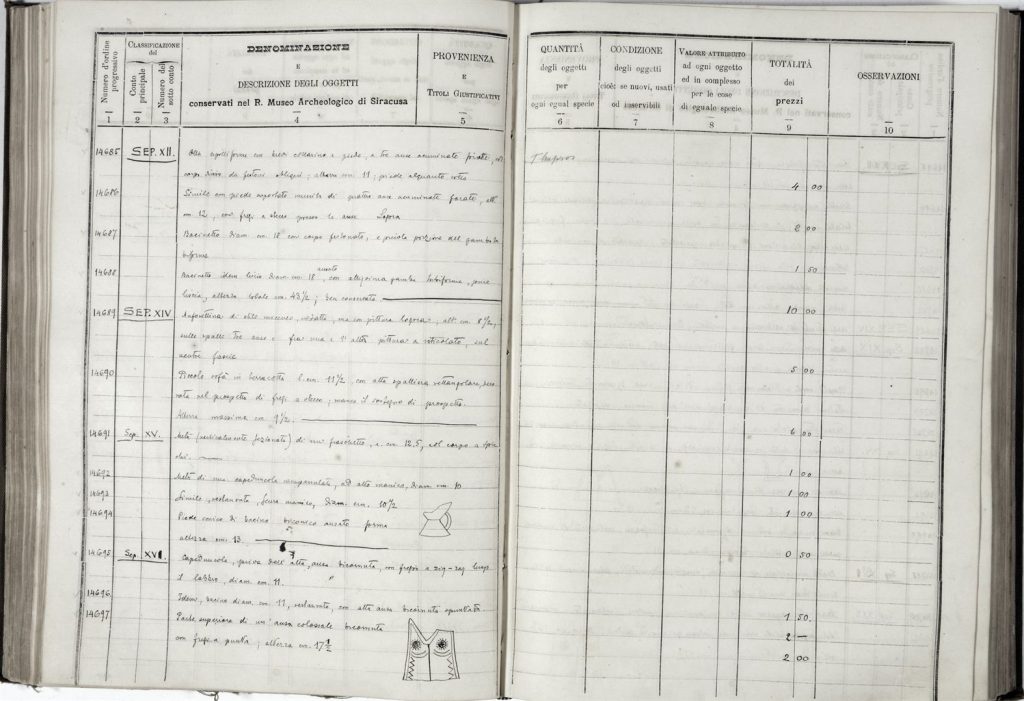 Numero d'ordine progressivo
1
CLASSIFICAZIONE
del
Conto principale
2
Numero del sotto conto
3
DENOMINAZIONE
E
DESCRIZIONE DEGLI OGGETTI
conservati nel R. Museo Archeologico di Siracusa
4
PROVENIENZA
E
TITOLI GIUSTIFICATIVI
5
QUANTITÀ
degli oggetti
per
ogni egual specie
6
CONDIZIONE
degli oggetti
cioè: se nuovi, usati
od inservibili
7
VALORE ATTRIBUITO
ad ogni oggetto
ed in complesso
per le cose
di eguale specie
8
TOTALITÀ
dei
prezzi
9
OSSERVAZIONI
10
14685 SEP. XII. Olla con breve collarino e piede, a tre anse acuminate forate,
corpo diam. alterna cm. 11; piede alquanto rotto
Thapsos
4 00
14686 Simile con piede riportato munita di quattro anse acuminate forate, alt.
cm. 12, con fregi a stecco presso le anse
2 00
14687 Bacinetto diam. cm. 18 con corpo e piccola porzione del gambo
tubiforme
1 50
14688 Bacinetto idem liscio diam. cm. 18, con altissima gamba tubiforme,
liscia, altezza totale cm. 43 1/2; ben conservato
10 00
14689 SEP. XIV Anforettina di stile miceneo, ma con pittura logora; alt. cm. 8 1/2,
sulle spalle tre anse e fra una e l'altra pittura a reticolato, sul
ventre fascie
5 00
14690 Piccolo sofà in terracotta l. cm. 11 1/2, con alta spalliera rettangolare,
nel prospetto di fregi a stecco; manca il sostegno di prospetto.
Altezza massima cm. 9 1/2.
6 00
14691 Sep. XV. Metà (verticalmente sezionata) di un fiaschetto, cm. 12,5, col corpo a
14692 Metà di una capeduncola, ad alto manico, diam. cm. 10
1 00
14693 Simile, restaurata, senza manico, diam. cm. 10 1/2
1 00
14694 Piede conico di bacino forma
altezza cm. 13.
1 00
14695 Sep. XVI. Capeduncola, priva dell'alta ansa bicornuta, con fregio a zig-zag lungo
il labbro, diam. cm. 11.
0 50
14696. Idem, bacino diam. cm. 11, restaurata, con alta ansa bicornuta spuntata
1 50.
14697 Parte superiore di un'ansa colossale bicornuta
con fregi a punta; altezza cm. 17 1/2
2 —
2 00